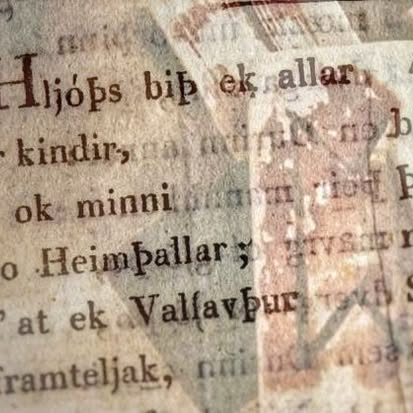 Hljóþs biþ ek allar
kindir,
ok minni
o Heimþallar;
at ek Valſavþur
framteljak,